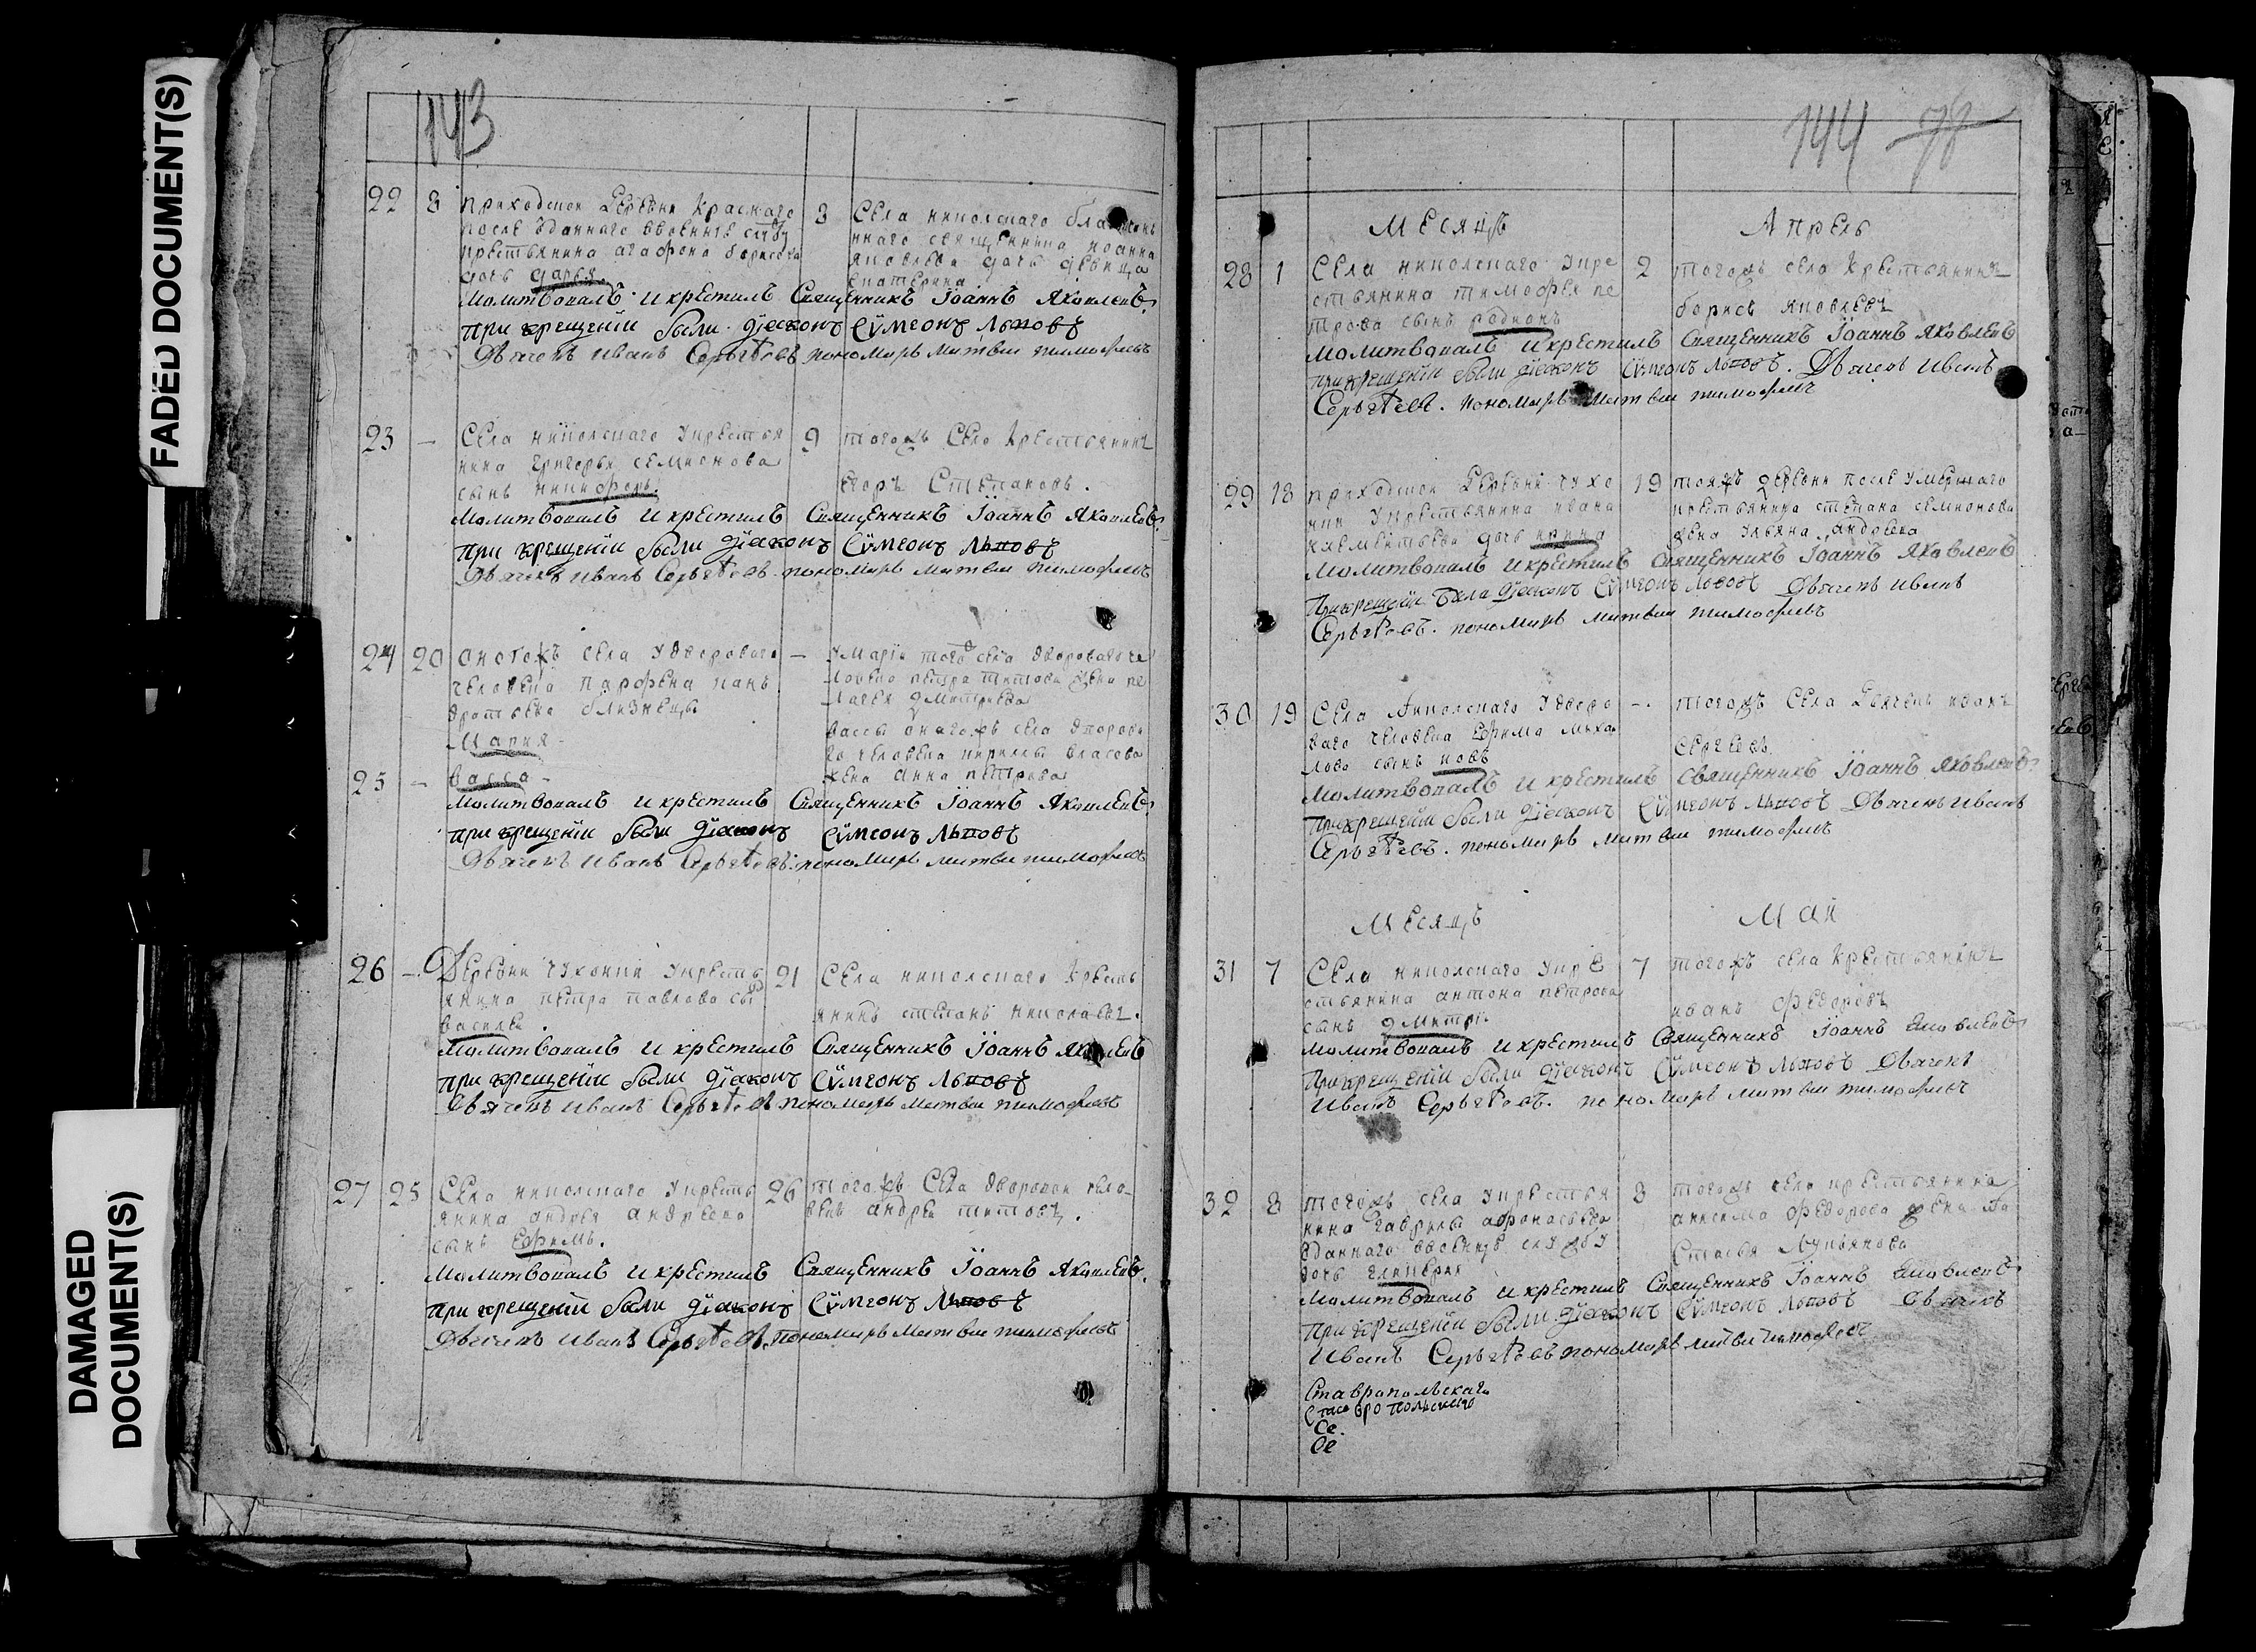 FADED DOCUMENT(S)
DAMAGED
DOCUMENT(S)
143
22 8 приходской деревни Краснаго
после зданнаго ввоенную
крестьянина агафона борисова
дочь дарья.
8 Села никольскаго
священника иоанна
яковлева дочь девица
екатерина
молитвовалъ и крестилъ Священникъ Іоаннъ Яковлевъ
при крещеніи были діаконъ Сѵмеонъ Львовъ
Дьячекъ иванъ Сергѣевъ пономарь матвеи тимофеевъ
23 — Села никольскаго укрестья
нина григорья семионова
сынъ никифоръ.
9 тогожъ Села крестьянинъ
Егоръ Степановъ.
молитвовалъ и крестилъ Священникъ Іоаннъ Яковлевъ
при крещеніи были діаконъ Сѵмеонъ Львовъ
Дьячекъ иванъ Сергѣевъ пономарь матвеи тимофеевъ
24 20 оногожъ села удвороваго
человека парфена кан
дратьева близнецы
Мария
— умаріи того села двороваго че
ловека петра титова жена пе
лагея дмитриева
вассы оногожъ села дворова
го человека кирилы власова
жена анна петрова
25 — васса
молитвовалъ и крестилъ Священникъ Іоаннъ Яковлевъ
при крещеніи были діаконъ Сѵмеонъ Львовъ
Дьячекъ иванъ Сергѣевъ пономарь матвеи тимофеевъ
26 — Деревни чукокии укресть
янина петра павлова сы
василеи.
21 Села никольскаго кресть
янинъ степанъ николаевъ.
молитвовалъ и крестилъ Священникъ Іоаннъ Яковлевъ
при крещеніи были діаконъ Сѵмеонъ Львовъ
Дьячекъ иванъ Сергѣевъ пономарь матвеи тимофеевъ
27 25 Села никольскаго укресть
янина андрея андреева
сынъ ефимъ.
26 тогожъ Села дворовои чело-
векъ андреи титовъ.
молитвовалъ и крестилъ Священникъ Іоаннъ Яковлевъ
при крещеніи были діаконъ Сѵмеонъ Львовъ
Дьячекъ иванъ Сергѣевъ пономарь матвеи тимофеевъ
144 78
Месяцъ Апрель
28 1 Села никольскаго укре
стьянина тимофея пе
трова сынъ родионъ
2 тогожъ села крестьянинъ
борисъ яковлевъ
молитвовалъ и крестилъ Священникъ Іоаннъ Яковлевъ
при крещеніи были діаконъ Сѵмеонъ Львовъ. Дьячекъ иванъ
Сергѣевъ. пономарь матвеи тимофеевъ
29 18 приходской деревни чуко
кии укрестьянина ивана
клементьева дочь ирина
19 тояжъ деревни после умершаго
крестьянина степана семионова
жена ульяна андреева
молитвовалъ и крестилъ Священникъ Іоаннъ Яковлевъ
При крещеніи была діаконъ Сѵмеонъ Львовъ Дьячекъ иванъ
Сергѣевъ. пономарь матвеи тимофеевъ
30 19 Села Никольскаго удворо
ваго человека ефима миха
лова сынъ иовъ
— тогожъ Села Дьячекъ иванъ
Сергѣевъ
молитвовалъ и крестилъ священникъ Іоаннъ Яковлевъ
При крещеніи были діаконъ Сѵмеонъ Львовъ Дьячекъ иванъ
Сергѣевъ. пономарь матвеи тимофеевъ
Месяцъ Май
31 7 Села никольскаго укре
стьянина антона петрова
сынъ дмитріи
7 тогожъ села крестьянинъ
иванъ федоровъ
молитвовалъ и крестилъ Священникъ Іоаннъ Яковлевъ
При крещеніи были діаконъ Сѵмеонъ Львовъ Дьячекъ
иванъ Сергѣевъ. пономарь матвеи тимофеевъ
32 8 тогожъ села укрестья
нина гаврилы афонасьева
зданнаго ввоенную службу
дочь гликерия
8 тогожъ села крестьянина
анисима федорова жена на
стасья лукьянова
молитвовалъ и крестилъ Священникъ Іоаннъ Яковлевъ
При крещеніи были діаконъ Сѵмеонъ Львовъ Дьячекъ
иванъ Сергѣевъ пономарь матвеи тимофеевъ
Ставропольскаго
Ставропольскаго
Се.
Се